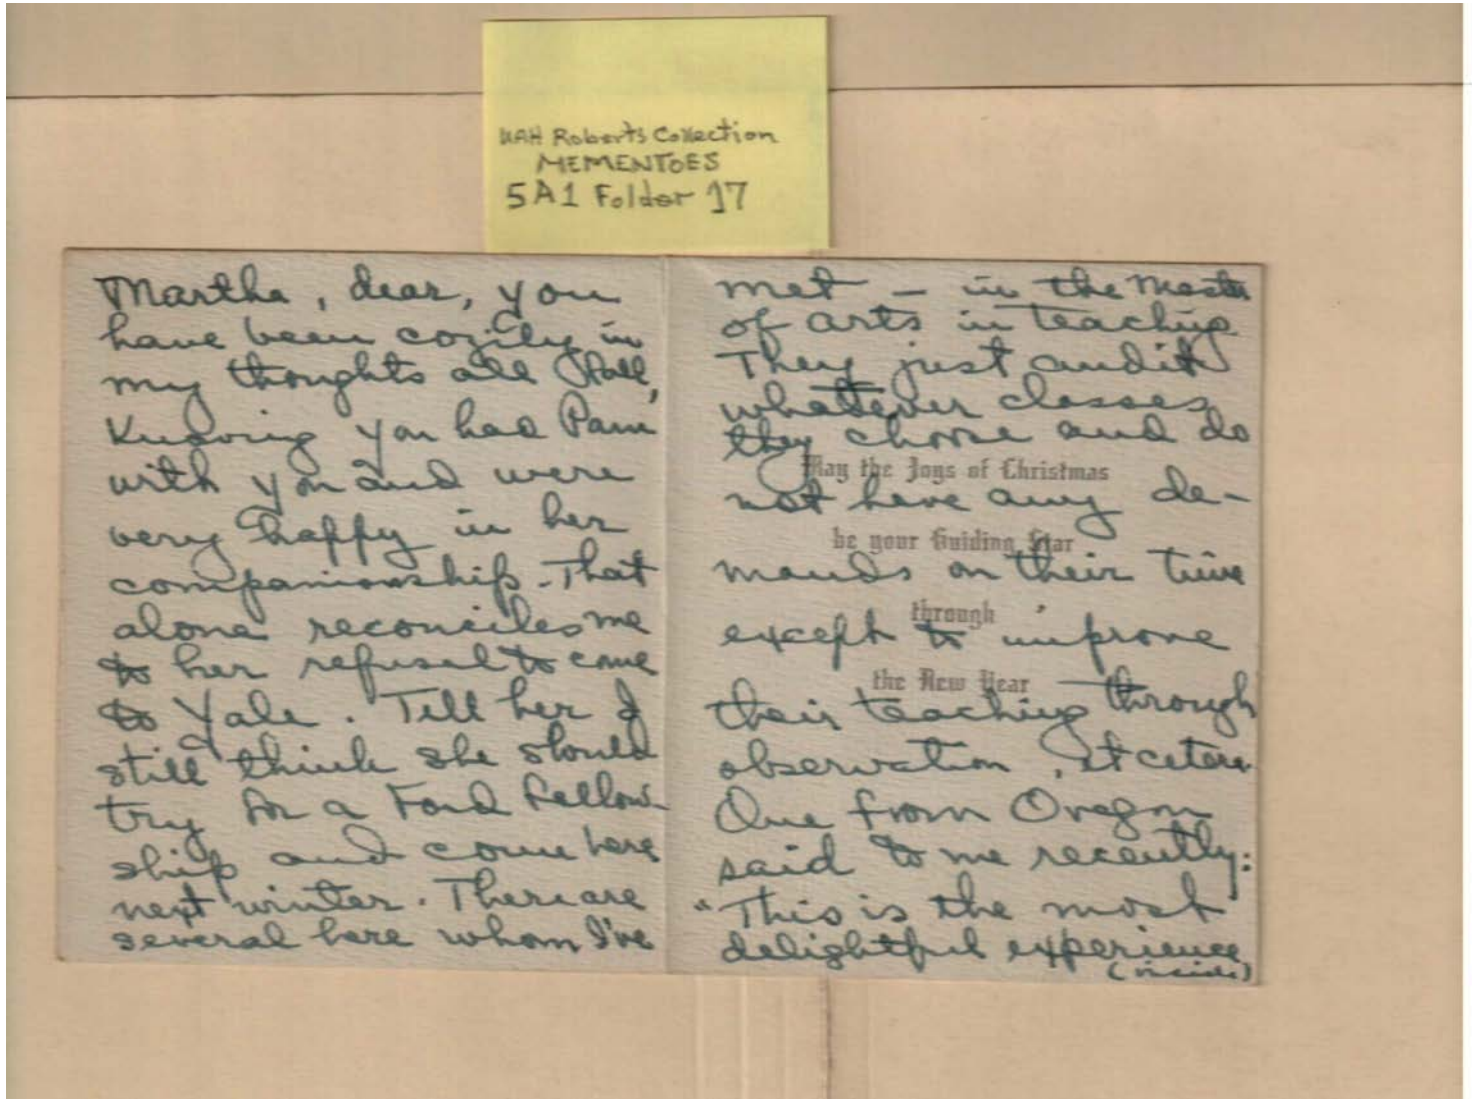 UAH Roberts Collection
MEMENTOES
5A1 Folder 17
Martha, dear, you
have been cozily in
my thoughts all Fall,
Knowing you had Pam
with you and were
very happy in her
companionship. That
alone reconciles me
to her refusal to come
to Yale. Tell her I
still think she should
try for a Ford Fellow-
ship and come here
next winter. There are
several here whom I've
met – in the Master
of arts in teaching
They just audit
whatever classes
they choose and do
May the Joys of Christmas
not have any de-
be your Guiding Star
mands on their time
through
except to improve
the New Year
their teaching through
observation, et cetera
One from Oregon
said to me recently:
"This is the most
delightful experience
(inside)